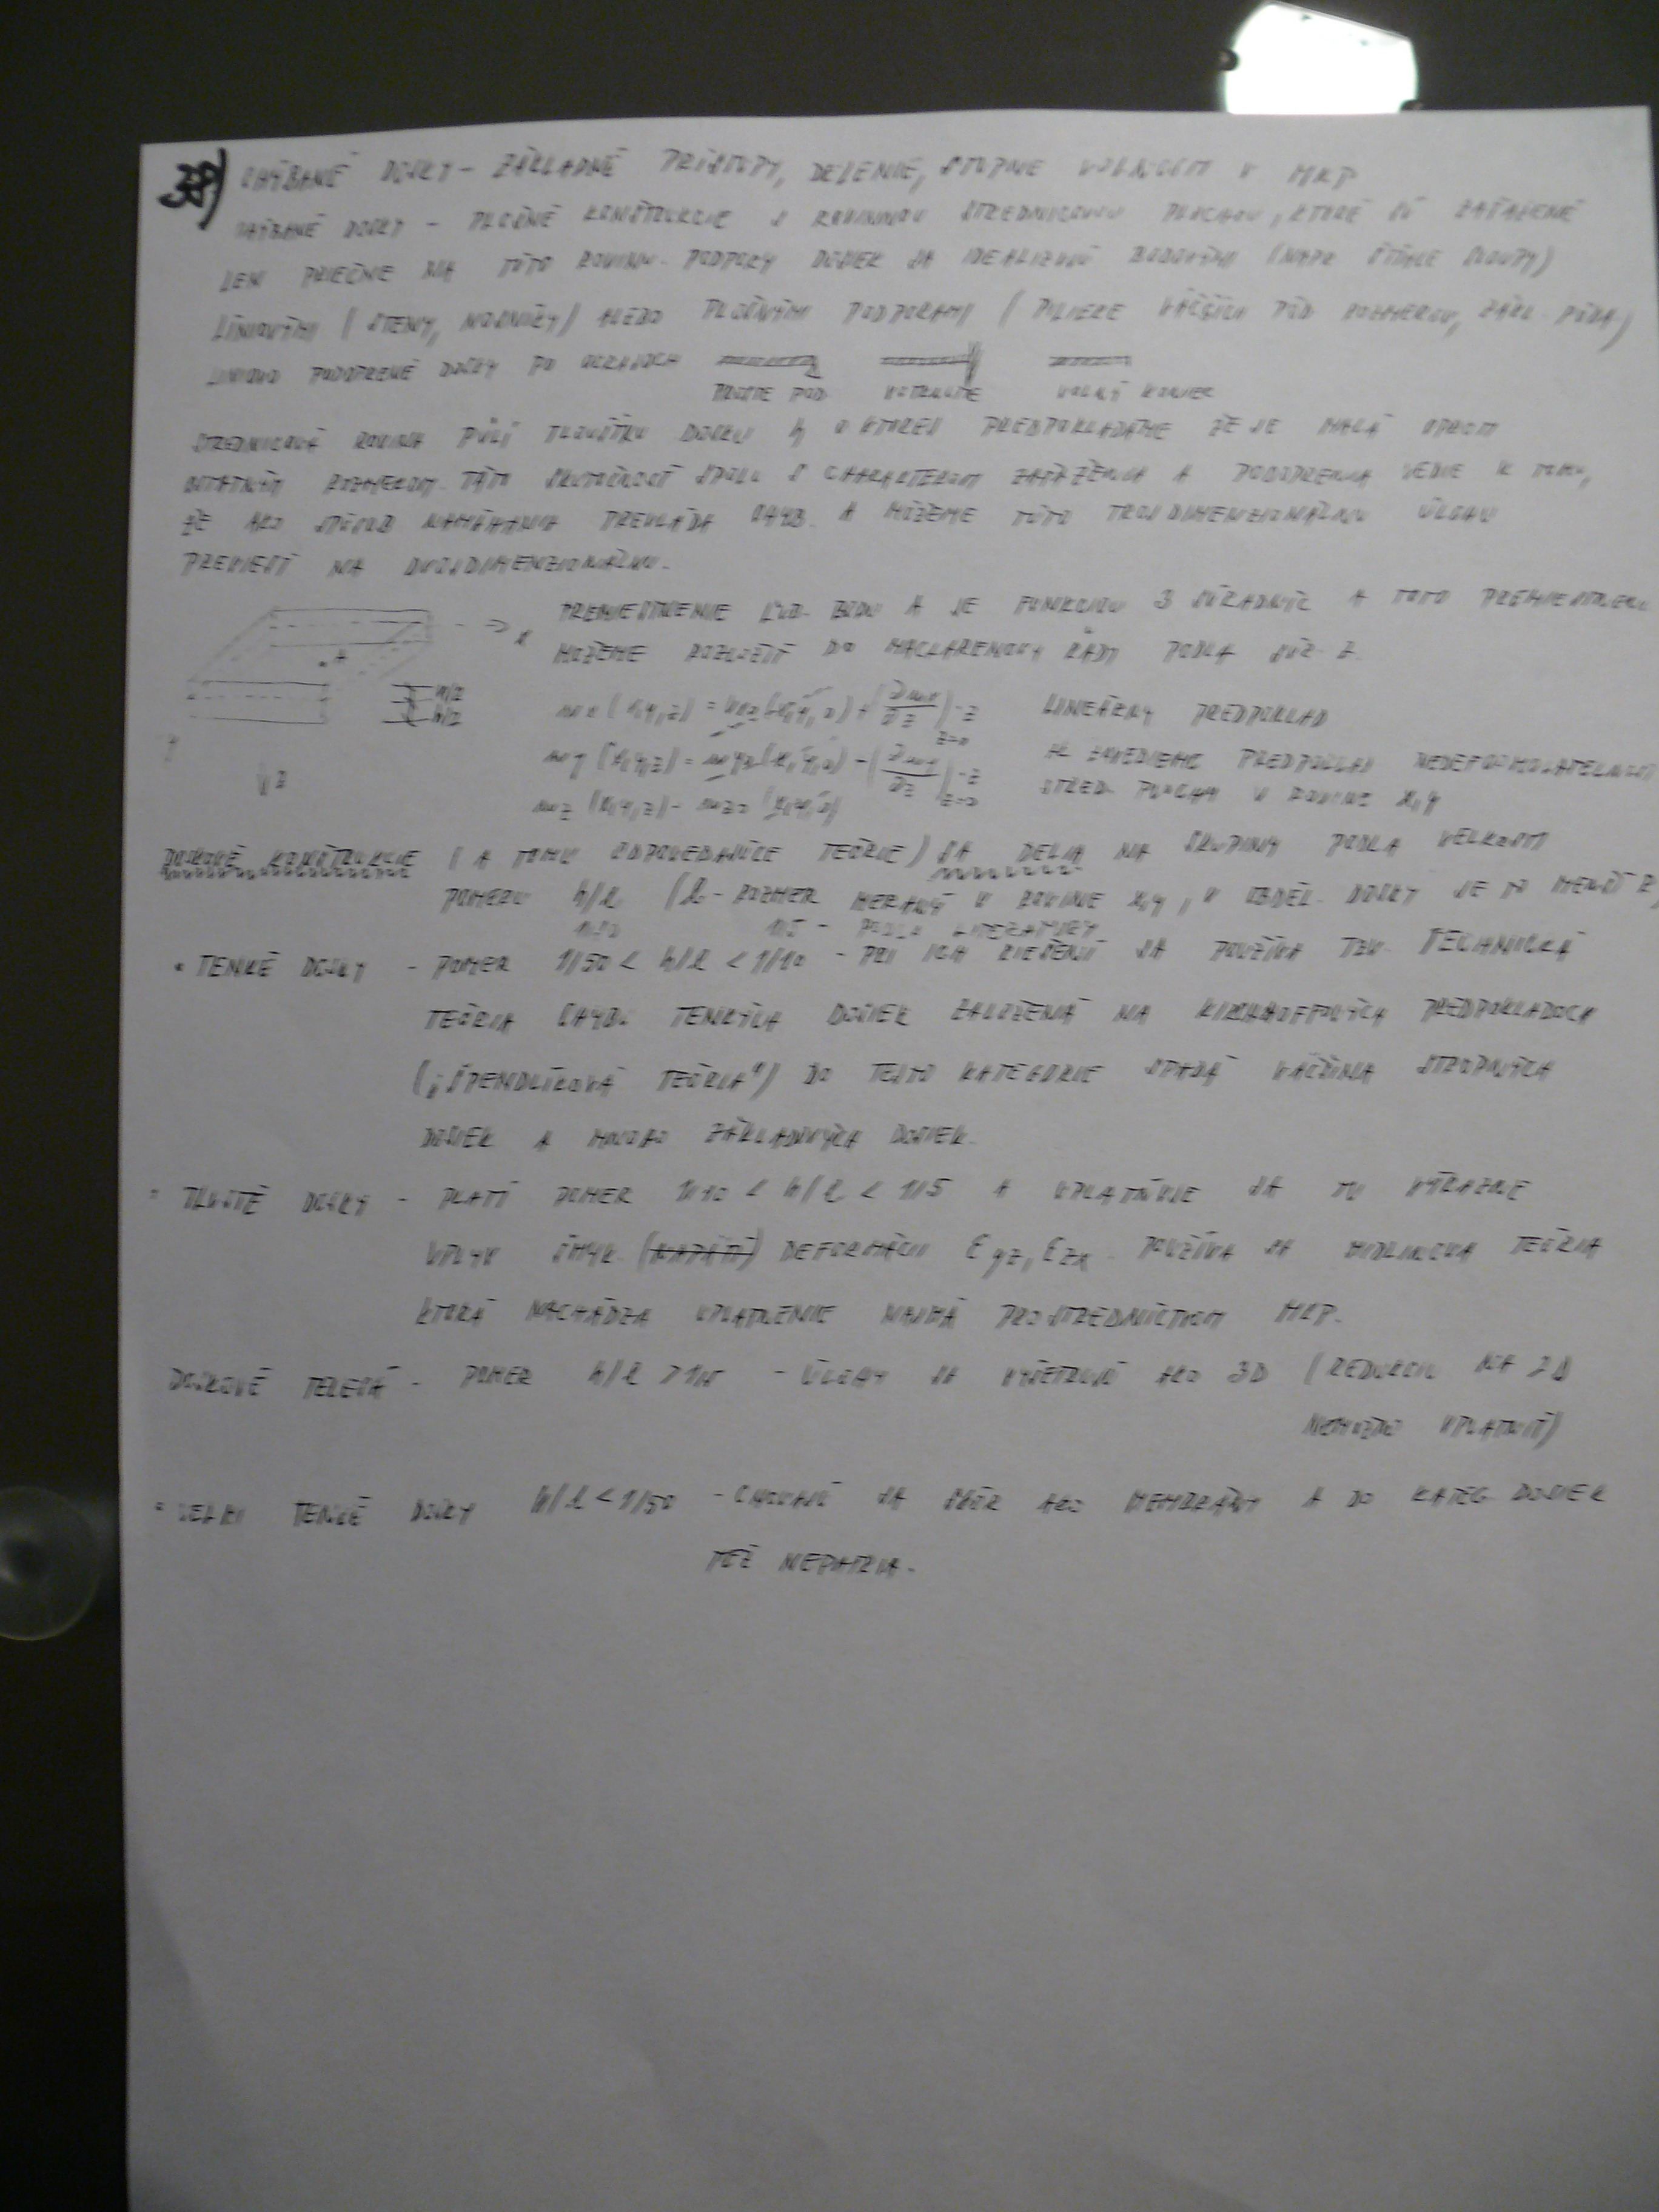 38) OHÝBANÉ DOSKY - ZÁKLADNÉ PRÍSTUPY, DELENIE, STUPNE VOĽNOSTI V MKP
OHÝBANÉ DOSKY - PLOŠNÉ KONŠTRUKCIE S ROVINNOU STREDNICOVOU PLOCHOU, KTORÉ SÚ ZAŤAŽENÉ
LEN PRIEČNE NA TÚTO ROVINU. PODPORY DOSIEK SA IDEALIZUJÚ BODOVÝMI (NAPR ŠTÍHLE SLOUPY)
LÍNIOVÝMI (STENY, NOSNÍKY) ALEBO PLOŠNÝMI PODPORAMI (PILIERE VÄČŠÍCH PÔD. ROZMEROV, ZÁKL. PÔDA)
LÍNIOVO PODOPRENÉ DOSKY PO OKRAJOCH
PROSTE POD. VOTKNUTIE VOĽNÝ KONIEC
STREDNICOVÁ ROVINA PÔLI TLOUŠTKU DOSKY h, O KTOREJ PREDPOKLADÁME ŽE JE MALÁ OPROTI
OSTATNÝM ROZMEROM. TÁTO SKUTOČNOSŤ SPOLU S CHARAKTEROM ZAŤAŽENIA A PODOPRENIA VEDIE K TOMU,
ŽE AKO SPÔSOB NAMÁHANIA PREVLÁDA OHYB. A MÔŽEME TÚTO TROJDIMENZIONÁLNU ÚLOHU
PREVIESŤ NA DVOJDIMENZIONÁLNU.
PREMIESTNENIE ĽUB. BODU A JE FUNKCIOU 3 SÚRADNÍC A TOTO PREMIESTNENIE
MÔŽEME ROZLOŽIŤ DO MACLARENOVY ŘADY PODĽA SÚR. Z.
A x h/2 h/2 y z
LINEÁRNY PREDPOKLAD
AK ZAVEDIEME PREDPOKLAD NEDEFORMOVATEĽNOSTI
STRED. PLOCHY V ROVINE x,y
DOSKOVÉ KONŠTRUKCIE (A TOMU ODPOVEDAJÚCE TEÓRIE) SA DELIA NA SKUPINY PODĽA VEĽKOSTI
POMERU h/l (l - ROZMER MERANÝ V ROVINE x,y, V OBDĹŽ. DOSKY JE TO MENŠÍ R)
1/5 - PODĽA LITERATÚRY
• TENKÉ DOSKY - POMER 1/50 < h/l < 1/10 - PRI ICH RIEŠENÍ SA POUŽÍVA TZV. TECHNICKÁ
TEÓRIA OHYBU TENKÝCH DOSIEK ZALOŽENÁ NA KIRCHHOFFOVÝCH PREDPOKLADOCH
("ŠPENDLÍKOVÁ TEÓRIA") DO TEJTO KATEGORIE SPADÁ VÄČŠINA STROPNÝCH
DOSIEK A MNOHO ZÁKLADOVÝCH DOSIEK.
• TLUSTÉ DOSKY - PLATÍ POMER 1/10 < h/l < 1/5 A UPLATŇUJE SA TU VÝRAZNE
VPLYV ŠMYK. DEFORMÁCII εyz, εzx. POUŽÍVA SA MIDLINOVA TEÓRIA
KTORÁ NACHÁDZA UPLATNENIE NAJMÄ PROSTREDNÍCTVOM MKP.
DOSKOVÉ TELESÁ - POMER h/l > 1/5 - ÚLOHY SA VYŠETRUJÚ AKO 3D (REDUKCIU NA 2D
NEMOŽNO UPLATNIŤ)
• VEĽMI TENKÉ DOSKY h/l < 1/50 - CHOVAJÚ SA SKÔR AKO MEMBRÁNY A DO KATEG. DOSIEK
TIEŽ NEPATRIA.